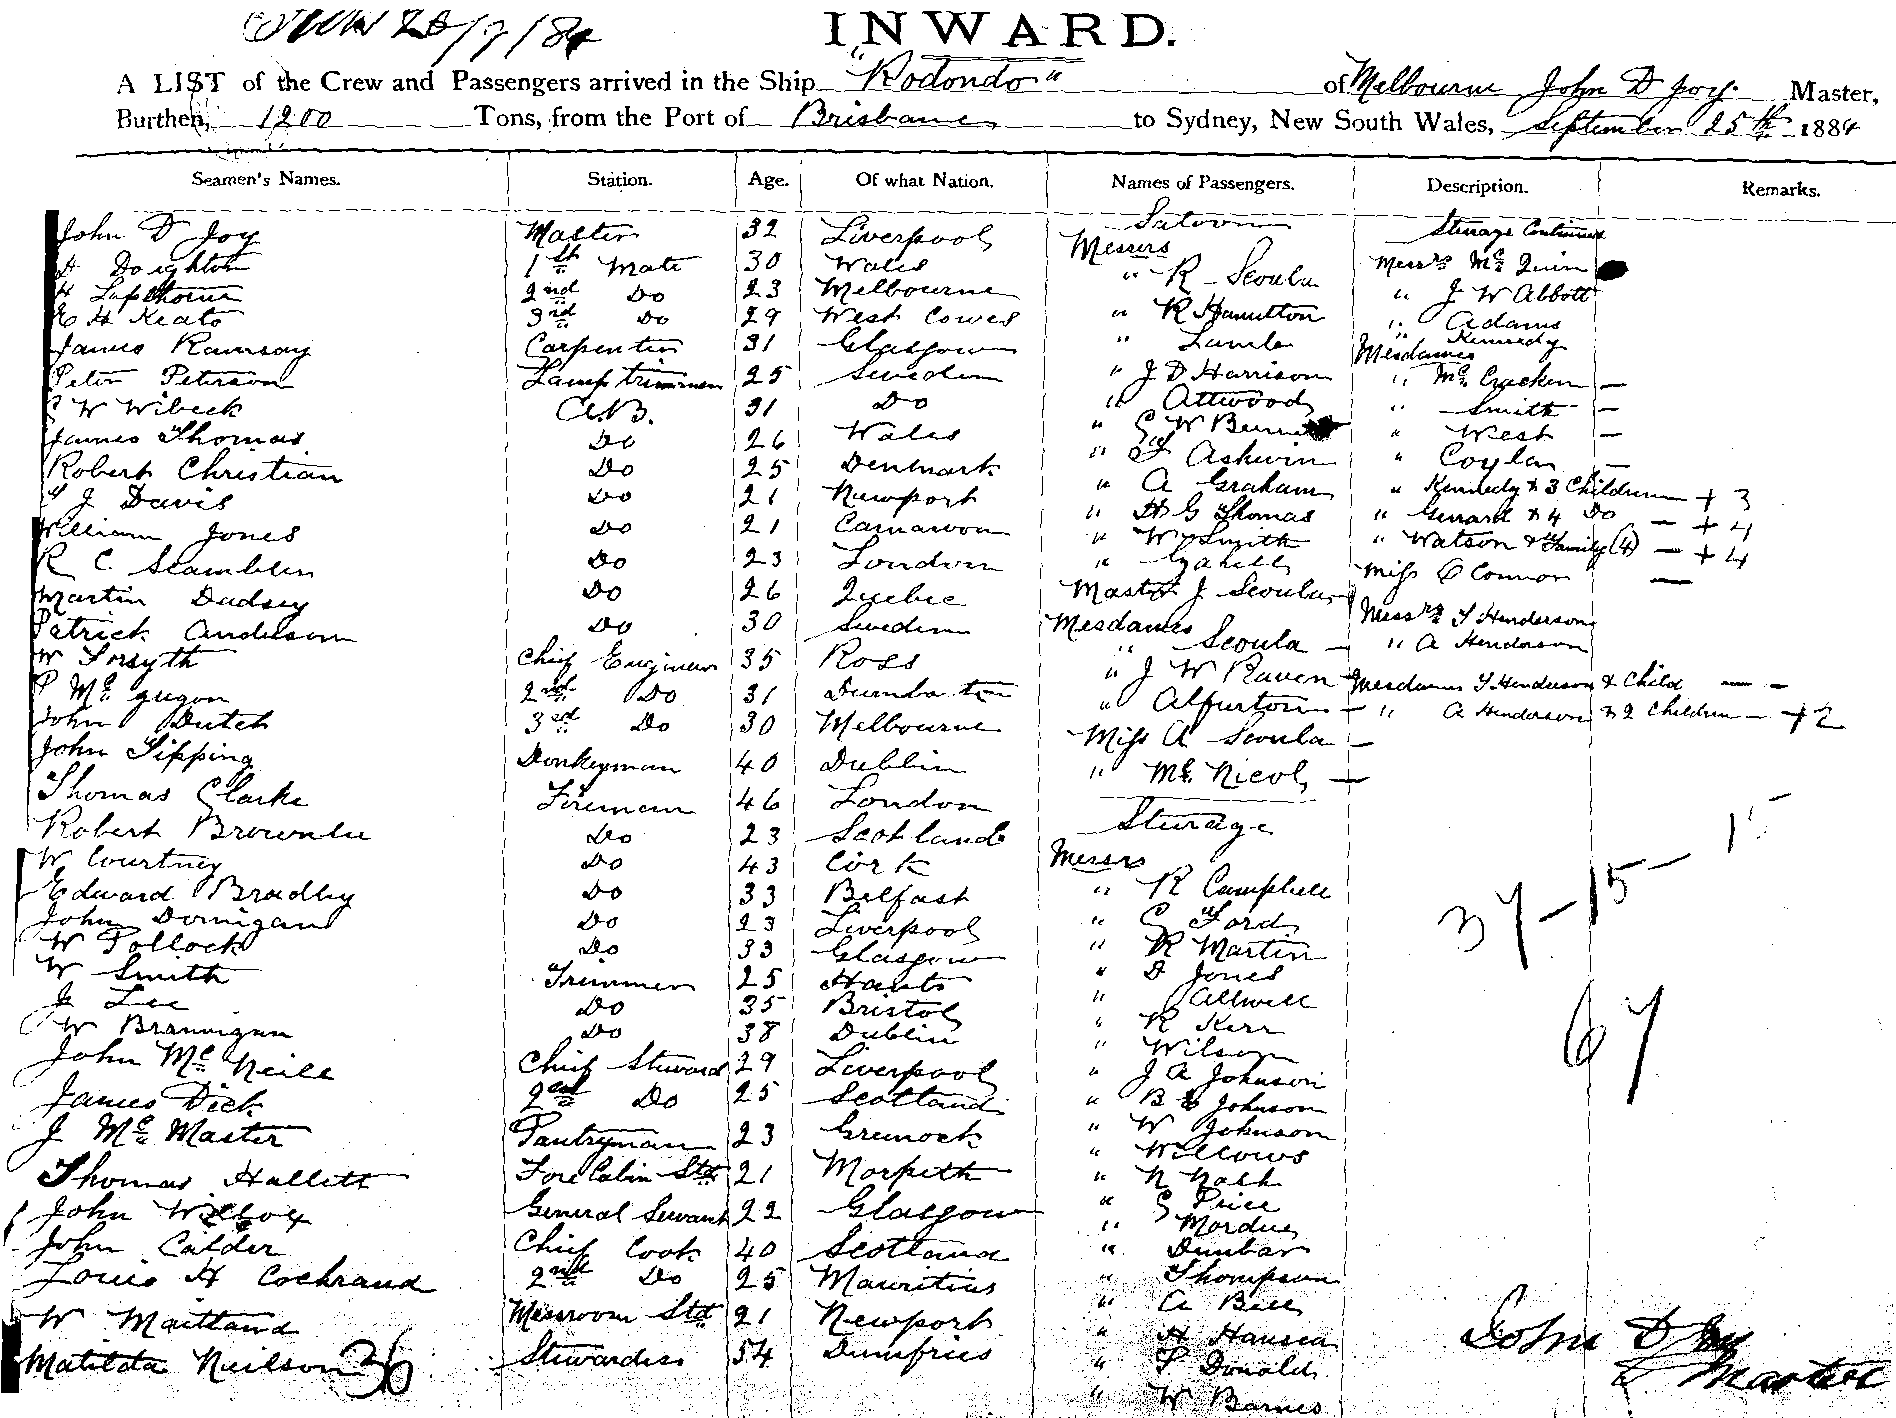 INWARD.
A LIST of the Crew and Passengers arrived in the Ship "Rodondo" of Melbourne John D Joy. Master,
Burthen, 1200 Tons, from the Port of Brisbane to Sydney, New South Wales, September 25th 1884
Seamen's Names. Station. Age. Of what Nation. Names of Passengers. Description. Remarks.
Saloon Steerage Continued
John D Joy Master 32 Liverpool Messrs
H Doighton 1st Mate 30 Wales " R Scoular Messrs Mc Quin
H Lapthorne 2nd Do 23 Melbourne " R Hamilton " J W Abbott
E H Keats 3rd Do 29 West Cowes " Lamb " Adams
" Kennedy
James Ramsay Carpenter 31 Glasgow " J D Harrison Mesdames
Peter Peterson Lamptrimmer 25 Sweden " Attwood " Mc Cracken —
C W Wibeck A.B. 31 Do " G W " Smith —
James Thomas Do 26 Wales " F Ashwin " West —
Robert Christian Do 25 Denmark " A Graham " Coylan —
T J Davis Do 21 Newport " H G Thomas " Kennedy & 3 Children — + 3
William Jones Do 21 Carnarvon " W Smith " Gerrard & 4 Do — + 4
R C Stamblen Do 23 London " " Watson & Family (4) — + 4
Martin Dudsey Do 26 Quebec Master J Scoular Miss O Connor —
Patrick Anderson Do 30 Sweden Mesdames Messrs T Henderson
W Forsyth Chief Engineer 35 Ross " Scoula — " A Henderson
P Mc gugon 2nd Do 31 Dumbarton " J W Raven Mesdames T Henderson & Child — -
John Dutch 3rd Do 30 Melbourne " Alpurton — " A Henderson & 2 Children — + 2
John Tipping Donkeyman 40 Dublin Miss A Scoula —
Thomas Clarke Fireman 46 London " Mc Nicol —
Robert Brownlee Do 23 Scotland Steerage
W Courtney Do 43 Cork Messrs
Edward Bradley Do 33 Belfast " R Campbell
John Dornigan Do 23 Liverpool " G Ford
W Pollock Do 33 Glasgow " R Martin
W Smith Trimmer 25 Hants " D Jones
J Lee Do 35 Bristol " Allwell
W Brannigan Do 38 Dublin " R Kerr
John Mc Neill Chief Steward 29 Liverpool " Wilson
James Dick 2nd Do 25 Scotland " J A Johnson
J Mc Master Pantryman 23 Greenock " B E Johnson
Thomas Hallett Fore Cabin Std 21 Morpeth " W Johnson
John Wilcox General Servant 22 Glasgow " Willows
John Calder Chief Cook 40 Scotland " N Nash
Louis H Cochrand 2nd Do 25 Mauritius " G Price
W Maitland Messroom Std 21 Newport " Mordue
Matilda Neilson 36 Stewardess 54 Dumfries " Dunbar
" Thompson
" A Bell
" H Hansen
" T Donald
" W Barnes
37 — 15 — 15
67
John D Joy
Master